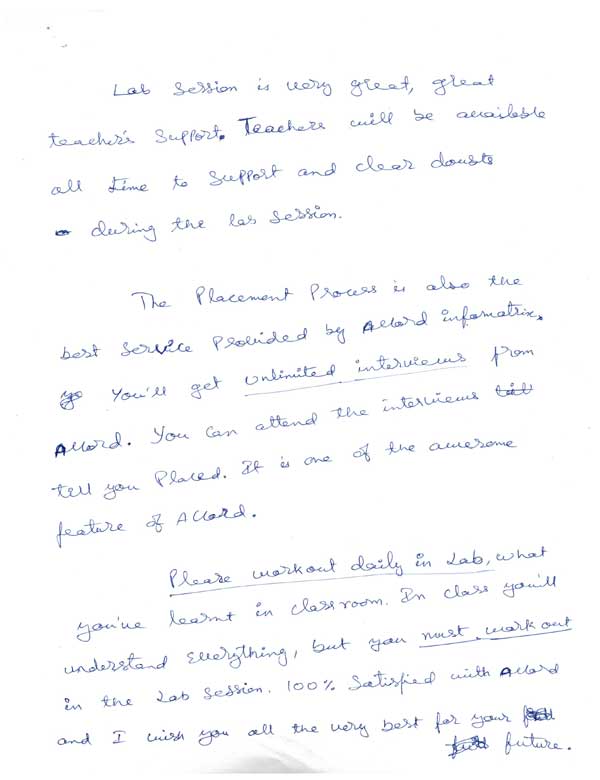 Lab Session is very great, great
teacher's Support. Teachers will be available
all time to Support and clear doubts
during the lab Session.
The Placement Process is also the
best Service Provided by Accord infomatrix.
You'll get unlimited interviews from
Accord. You Can attend the interviews
tell you Placed. It is one of the awesome
feature of Accord.
Please workout daily in Lab, what
you've learnt in classroom. In class you'll
understand everything, but you must work out
in the Lab Session. 100% Satisfied with Accord
and I wish you all the very best for your
future.